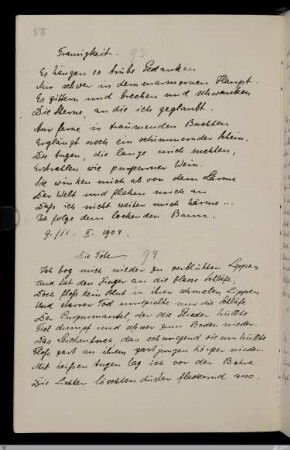 58
Traurigkeit. 93
Es hängen so trübe Gedanken
Mir schwer in dem marmornen Haupt.
Es zittern und brechen und schwanken
Die Sterne, an die ich geglaubt.
Nur ferne in träumenden Buchten
Erglänzt noch ein schimmernder Schein.
Die Augen, die lange mich suchten,
Erstrahlen wie purpurner Wein.
Sie winken mich ab von dem Lärme
Der Welt und flehen mich an
Dass ich nicht weiter mich härme ...
Ich folge dem lockenden Bann.
9./11. II. 1904
Die Tote. 94
Ich bog mich nieder zu verblühten Lippen
Und bat den Finger an die blasse Schläfe,
Doch floss kein Blut in ihren schmalen Lippen
Und starrer Tod umspielte nur die Schläfe.
Der Purpurmantel der die Glieder hüllte
Fiel dumpf und schwer zum Boden nieder.
Das Leichentuch das schweigend sie umhüllte
Floss zart an ihrem zart jungen Körper nieder.
Mit heißen Augen lag ich vor der Bahre
Die Lichter löschten düster flackernd aus.